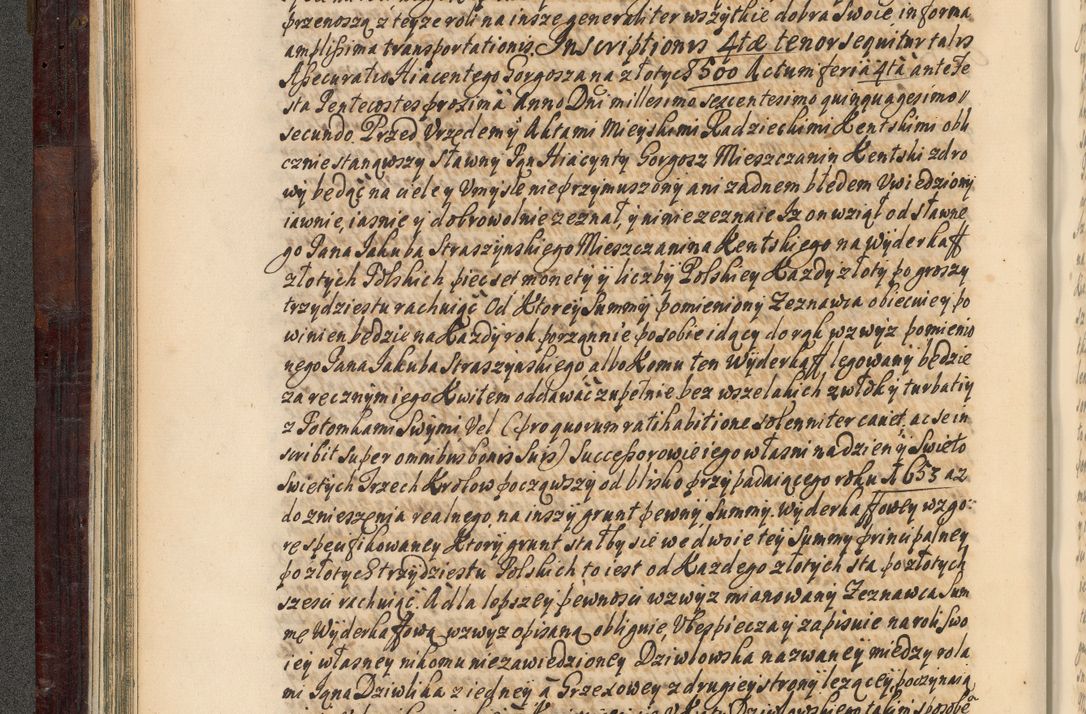 przenoszą z teyze roli na insze generaliter wszytkie dobra swoie, in forma
amplissima transportationis. Inscriptionis 4tæ tenor sequitur talis
Assecuratio Hiacentego Gorgosza na złotych 500 Actum feria 4tâ ante Fe
sta Pentecostes proximâ Anno Dni millesimo sexcentesimo quinquagesimo //
secundo. Przed Urzędem y Aktami Mieyskimi Radzieckimi Kentskimi obli
cznie stanąwszy sławny Pan Hiacynty Gorgosz Mieszczanin Kentski zdro
wy będąc na ciele y Umysle nieprzymuszony ani zadnem błędem Uwiedziony
iawnie, iasnie y dobrowolnie zeznał, y ninie zeznaie Iz on wziął od sławne
go Pana Jakuba Straszynskiego Mieszczanina Kentskiego na wyderkaff
złotych Polskich pięcset monety y liczby Polskiey Kazdy złoty po groszy
trzydziestu rachuiąc Od Ktorey Summy pomieniony Zeznawca obiecuie y po
winien będzie na Kazdy rok porządnie po sobie idący do rąk wzwyz pomienio
nego Pana Jakuba Straszynskiego, albo Komu ten Wyderkaff, legowany będzie
za ręcznym iego Kwitem oddawać zupełnie bez wszelakich zwłok y turbatiy
z Potomkami Swymi Vel (pro quorum ratihabitione solenniter cavet, ac se in
scribit super omnibus bonis suis) Successorowie iego własni na dzien y Swięto
Swiętych Trzech Krolow począwszy od blisko przypadaiącego roku 1653 az
do znieszenia realnego na inszy grunt pewny Summy Wyderkaffowey wzgo:
rę specifikowaney Ktory grunt stałby sie we dwoie tey Summy principalney
po złotych trzydziestu Polskich to iest od Kazdego złotych sta po złotych
szesci rachuiąc. A dla lepszey pewnosci wzwyz mianowany Zeznawca Sum
mę Wyderkaffową wzwyz opisaną obliguie, Ubespiecza y zapisuie na roli Swo
iey własney nikomu niezawiedzioney Dziwlowska nazwaney między rola
mi Pana Dziwlika z iedney a Grzesowey z drugiey strony lezącey, poczynaią